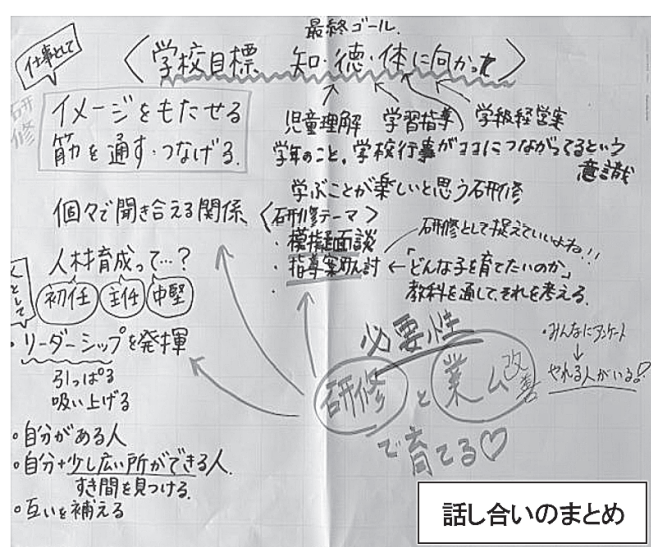 最終ゴール.
仕事として
〈学校目標 知・徳・体に向かった〉
研修
イメージをもたせる
筋を通す・つなげる.
児童理解 学習指導 学級経営案
学年のこと。学校行事がココにつながってるという
意識
学ぶことが楽しいと思う研修
個々で聞き合える関係
〈研修テーマ〉
・模擬面談
・指導案検討 ← どんな子を育てたいのか、
教科を通して、それを考える.
研修として捉えていいよね!!
人材育成って…?
初任 主任 中堅
として
・リーダーシップを発揮
引っぱる
吸い上げる
必要性
研修と業ム改善
で育てる♡
・みんなにアンケート
↓
やれる人がいる!?
・自分がある人
・自分+少し広い所ができる人.
すき間を見つける.
・互いを補える
話し合いのまとめ